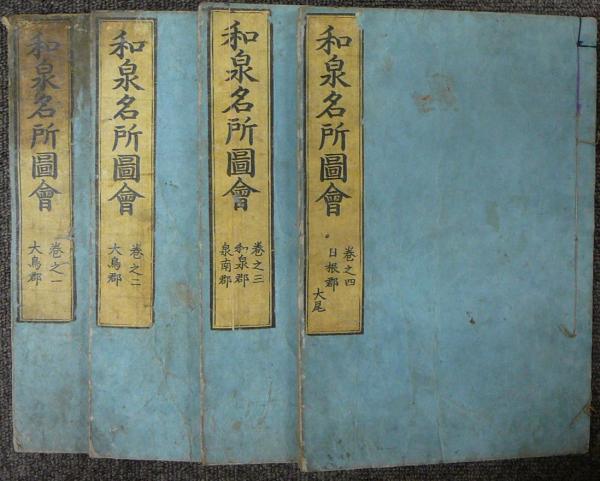 和泉名所圖會
巻之四
日根郡
大尾
和泉名所圖會
巻之三
和泉郡
泉南郡
和泉名所圖會
巻之二
大鳥郡
和泉名所圖會
巻之一
大鳥郡